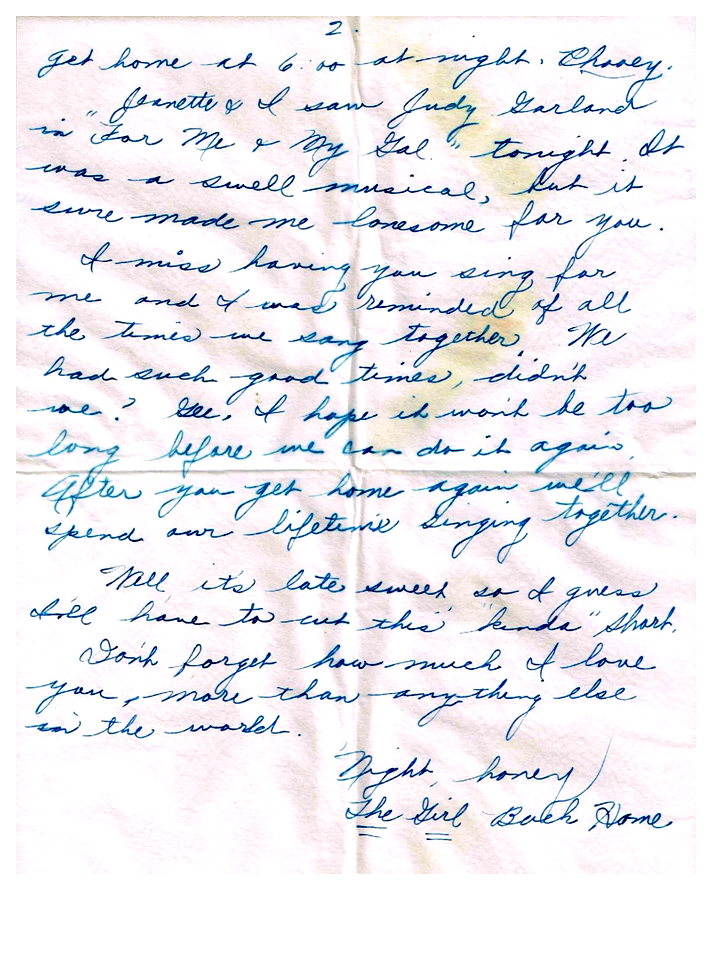 2.
get home at 6:00 at night. Chooey.
Jeanette & I saw Judy Garland
in "For Me & My Gal." tonight. It
was a swell musical, but it
sure made me lonesome for you.
I miss having you sing for
me and I was reminded of all
the times we sang together. We
had such good times, didn't
we? Gee, I hope it won't be too
long before we can do it again.
After you get home again we'll
spend our lifetime singing together.
Well it's late sweet so I guess
I'll have to cut this "kinda" short.
Don't forget how much I love
you, more than anything else
in the world.
'Night, honey
The Girl Back Home